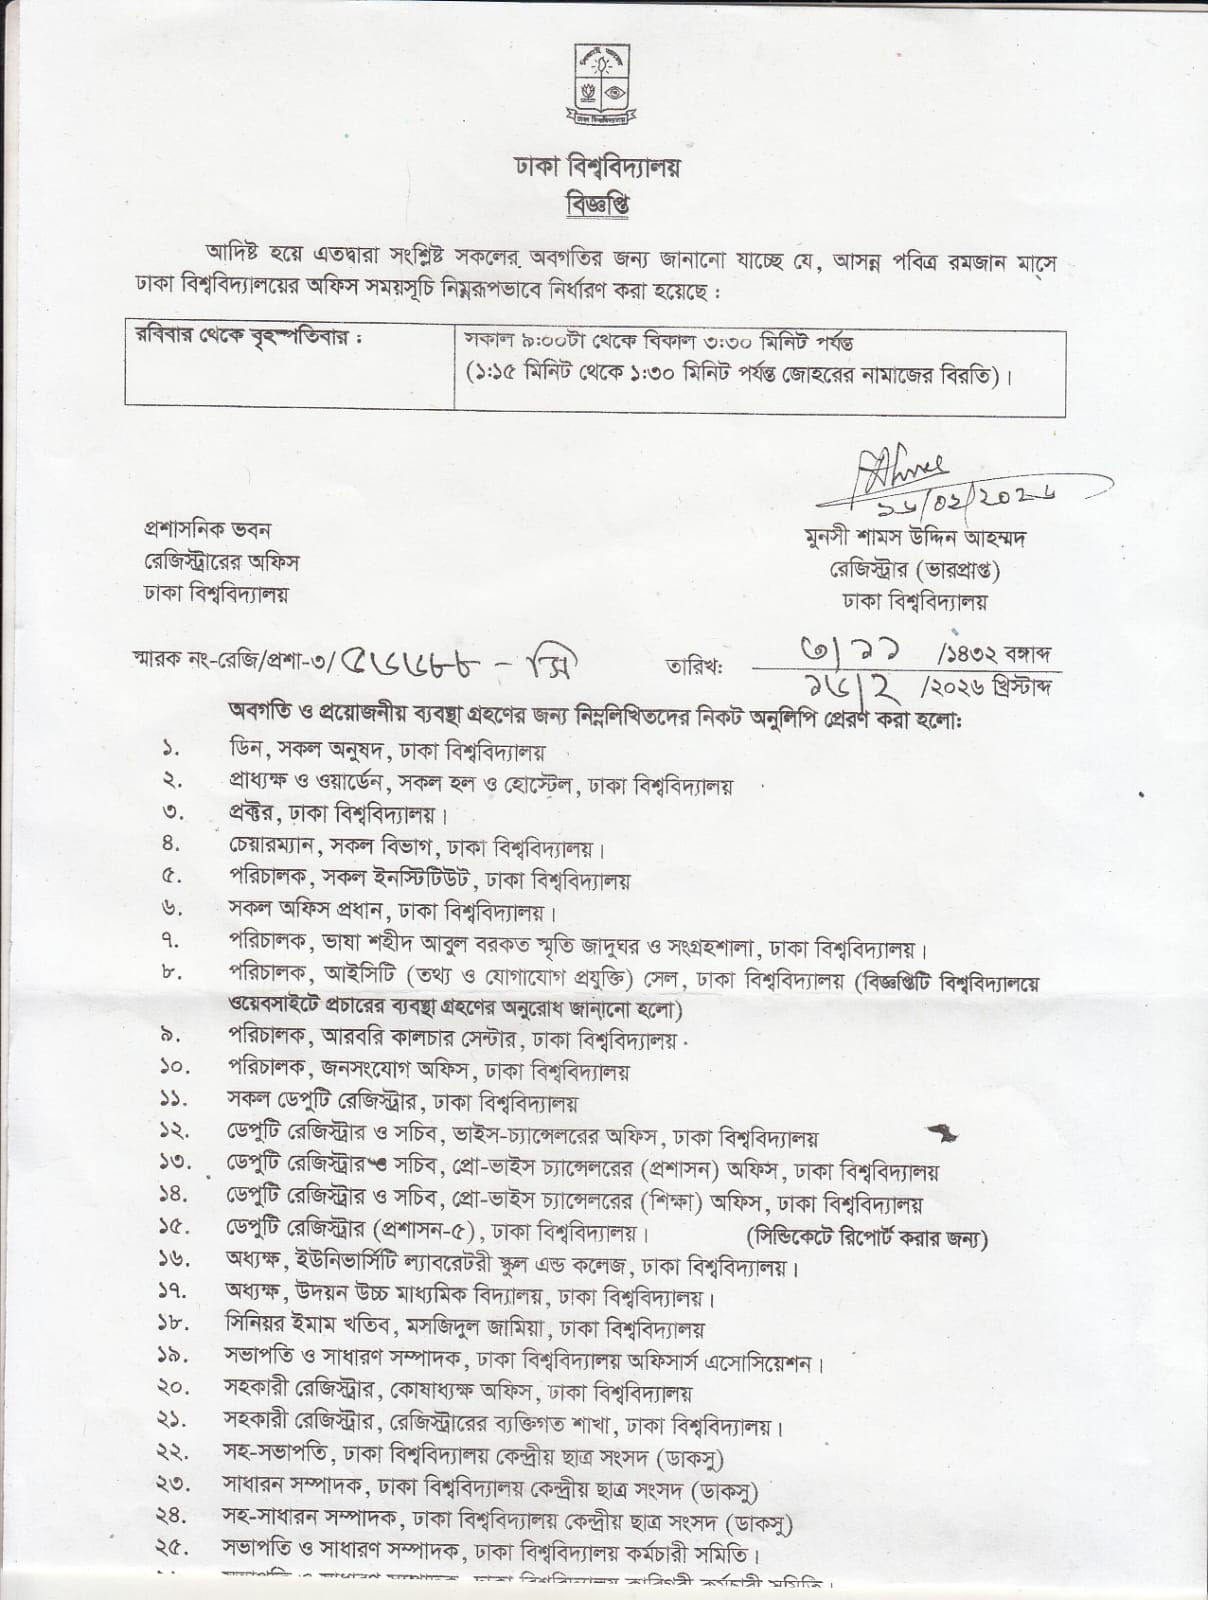 ঢাকা বিশ্ববিদ্যালয়
বিজ্ঞপ্তি
আদিষ্ট হয়ে এতদ্বারা সংশ্লিষ্ট সকলের অবগতির জন্য জানানো যাচ্ছে যে, আসন্ন পবিত্র রমজান মাসে
ঢাকা বিশ্ববিদ্যালয়ের অফিস সময়সূচি নিম্নরূপভাবে নির্ধারণ করা হয়েছে :
রবিবার থেকে বৃহস্পতিবার :
সকাল ৯:০০টা থেকে বিকাল ৩:৩০ মিনিট পর্যন্ত
(১:১৫ মিনিট থেকে ১:৩০ মিনিট পর্যন্ত জোহরের নামাজের বিরতি)।
১৬/০২/২০২৬
প্রশাসনিক ভবন
রেজিস্ট্রারের অফিস
ঢাকা বিশ্ববিদ্যালয়
মুনসী শামস উদ্দিন আহম্মদ
রেজিস্ট্রার (ভারপ্রাপ্ত)
ঢাকা বিশ্ববিদ্যালয়
স্মারক নং-রেজি/প্রশা-৩/৫৬৬৪৮৮ - সি
তারিখ: ৩/১১ /১৪৩২ বঙ্গাব্দ
১৬/২ /২০২৬ খ্রিস্টাব্দ
অবগতি ও প্রয়োজনীয় ব্যবস্থা গ্রহণের জন্য নিম্নলিখিতদের নিকট অনুলিপি প্রেরণ করা হলো:
১. ডিন, সকল অনুষদ, ঢাকা বিশ্ববিদ্যালয়
২. প্রাধ্যক্ষ ও ওয়ার্ডেন, সকল হল ও হোস্টেল, ঢাকা বিশ্ববিদ্যালয়
৩. প্রক্টর, ঢাকা বিশ্ববিদ্যালয়।
৪. চেয়ারম্যান, সকল বিভাগ, ঢাকা বিশ্ববিদ্যালয়।
৫. পরিচালক, সকল ইনস্টিটিউট, ঢাকা বিশ্ববিদ্যালয়
৬. সকল অফিস প্রধান, ঢাকা বিশ্ববিদ্যালয়।
৭. পরিচালক, ভাষা শহীদ আবুল বরকত স্মৃতি জাদুঘর ও সংগ্রহশালা, ঢাকা বিশ্ববিদ্যালয়।
৮. পরিচালক, আইসিটি (তথ্য ও যোগাযোগ প্রযুক্তি) সেল, ঢাকা বিশ্ববিদ্যালয় (বিজ্ঞপ্তিটি বিশ্ববিদ্যালয়ে
ওয়েবসাইটে প্রচারের ব্যবস্থা গ্রহণের অনুরোধ জানানো হলো)
৯. পরিচালক, আরবরি কালচার সেন্টার, ঢাকা বিশ্ববিদ্যালয়
১০. পরিচালক, জনসংযোগ অফিস, ঢাকা বিশ্ববিদ্যালয়
১১. সকল ডেপুটি রেজিস্ট্রার, ঢাকা বিশ্ববিদ্যালয়
১২. ডেপুটি রেজিস্ট্রার ও সচিব, ভাইস-চ্যান্সেলরের অফিস, ঢাকা বিশ্ববিদ্যালয়
১৩. ডেপুটি রেজিস্ট্রার ও সচিব, প্রো-ভাইস চ্যান্সেলরের (প্রশাসন) অফিস, ঢাকা বিশ্ববিদ্যালয়
১৪. ডেপুটি রেজিস্ট্রার ও সচিব, প্রো-ভাইস চ্যান্সেলরের (শিক্ষা) অফিস, ঢাকা বিশ্ববিদ্যালয়
১৫. ডেপুটি রেজিস্ট্রার (প্রশাসন-৫), ঢাকা বিশ্ববিদ্যালয়। (সিন্ডিকেটে রিপোর্ট করার জন্য)
১৬. অধ্যক্ষ, ইউনিভার্সিটি ল্যাবরেটরী স্কুল এন্ড কলেজ, ঢাকা বিশ্ববিদ্যালয়।
১৭. অধ্যক্ষ, উদয়ন উচ্চ মাধ্যমিক বিদ্যালয়, ঢাকা বিশ্ববিদ্যালয়।
১৮. সিনিয়র ইমাম খতিব, মসজিদুল জামিয়া, ঢাকা বিশ্ববিদ্যালয়
১৯. সভাপতি ও সাধারণ সম্পাদক, ঢাকা বিশ্ববিদ্যালয় অফিসার্স এসোসিয়েশন।
২০. সহকারী রেজিস্ট্রার, কোষাধ্যক্ষ অফিস, ঢাকা বিশ্ববিদ্যালয়
২১. সহকারী রেজিস্ট্রার, রেজিস্ট্রারের ব্যক্তিগত শাখা, ঢাকা বিশ্ববিদ্যালয়।
২২. সহ-সভাপতি, ঢাকা বিশ্ববিদ্যালয় কেন্দ্রীয় ছাত্র সংসদ (ডাকসু)
২৩. সাধারন সম্পাদক, ঢাকা বিশ্ববিদ্যালয় কেন্দ্রীয় ছাত্র সংসদ (ডাকসু)
২৪. সহ-সাধারন সম্পাদক, ঢাকা বিশ্ববিদ্যালয় কেন্দ্রীয় ছাত্র সংসদ (ডাকসু)
২৫. সভাপতি ও সাধারণ সম্পাদক, ঢাকা বিশ্ববিদ্যালয় কর্মচারী সমিতি।